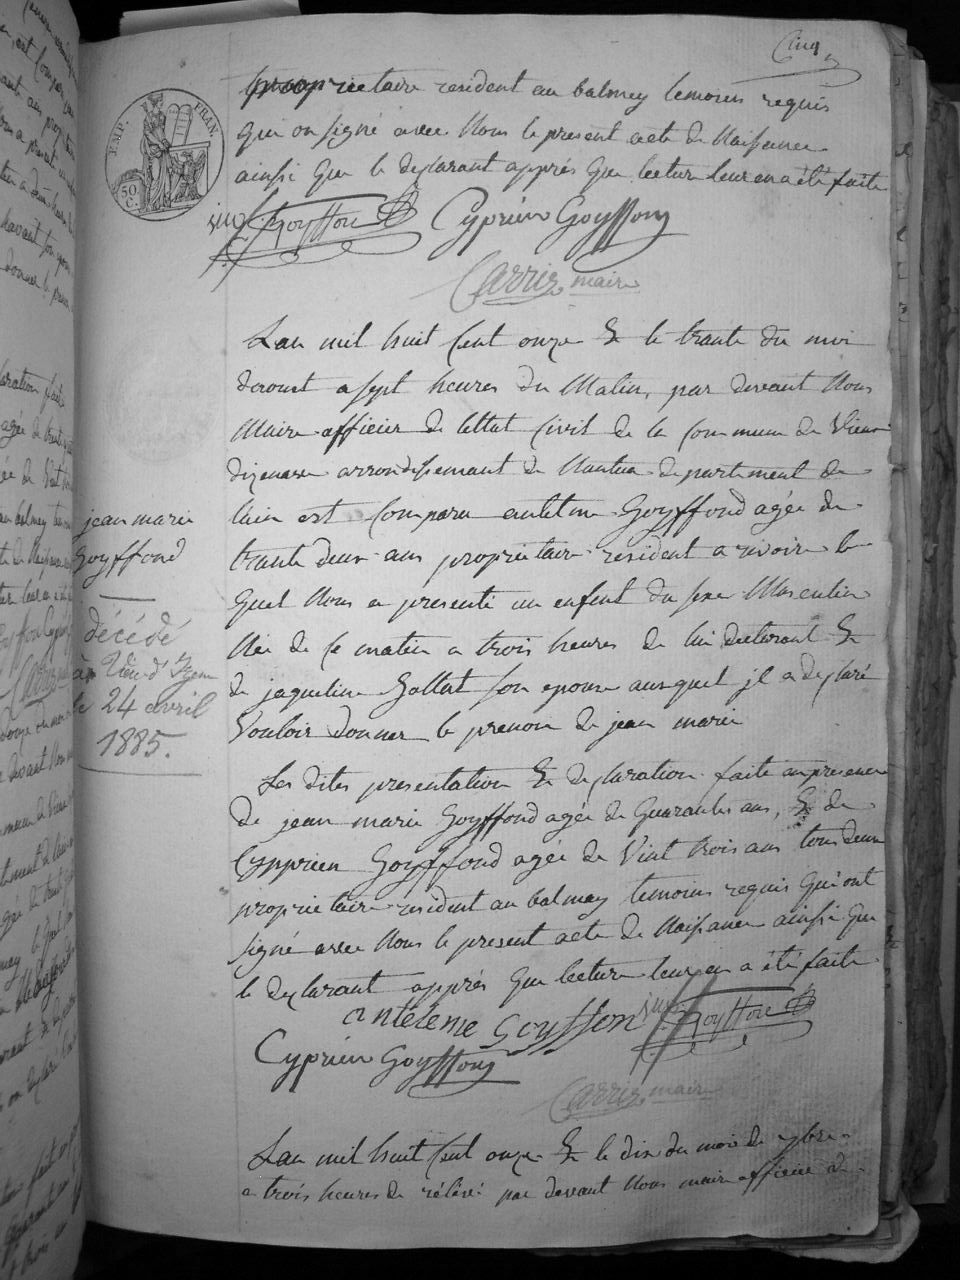 Cinq
proprietaire resident au balmey temoins requis
qui on signé avec Nous le present acte de Naissance
ainssi que le deylarant apprés que lecture leur en a été faite
EMP. FRAN.
50 C.
jm Goyffon Cyprien Goyffond
Carrier maire
Lan mil huit Cent onze & le trante du moi
deroust a sept heures du Matin, par devant Nous
Maire officier de lettat Civil de la Commune de Vieu
dizenave arrondissemant de Nantua departement de
lain est Comparu antelme Goyffond agée de
trante deux ans propriétaire resident a rivoire le
quel Nous a presenté un enfent du sexe Masculin
Née de Ce matin a trois heures de lui declarant &
de jaqueline Gallet son epouse auxquel jl a deylaré
Vouloir donner le prenom de jean marie
jean marie
Goyffond
décédé
à Vieu d'Izenave
le 24 avril
1885.
Les dites presentation & deylaration faite an presence
de jean marie Goyffond agée de Quarante ans, & de
Cypprien Goyffond agée de Vint trois ans tous deux
propriétaire résident au balmey temoins requis qui ont
signé avec Nous le present acte de Naissance ainssi que
le deylarant apprés que lecture leur en a été faite
antelme Goyffon jm Goyffon
Cyprien Goyffond
Carrier maire
Lan mil huit Cent onze & le dix du mois de 7bre
a trois heures de rélévé par devant Nous maire officier de